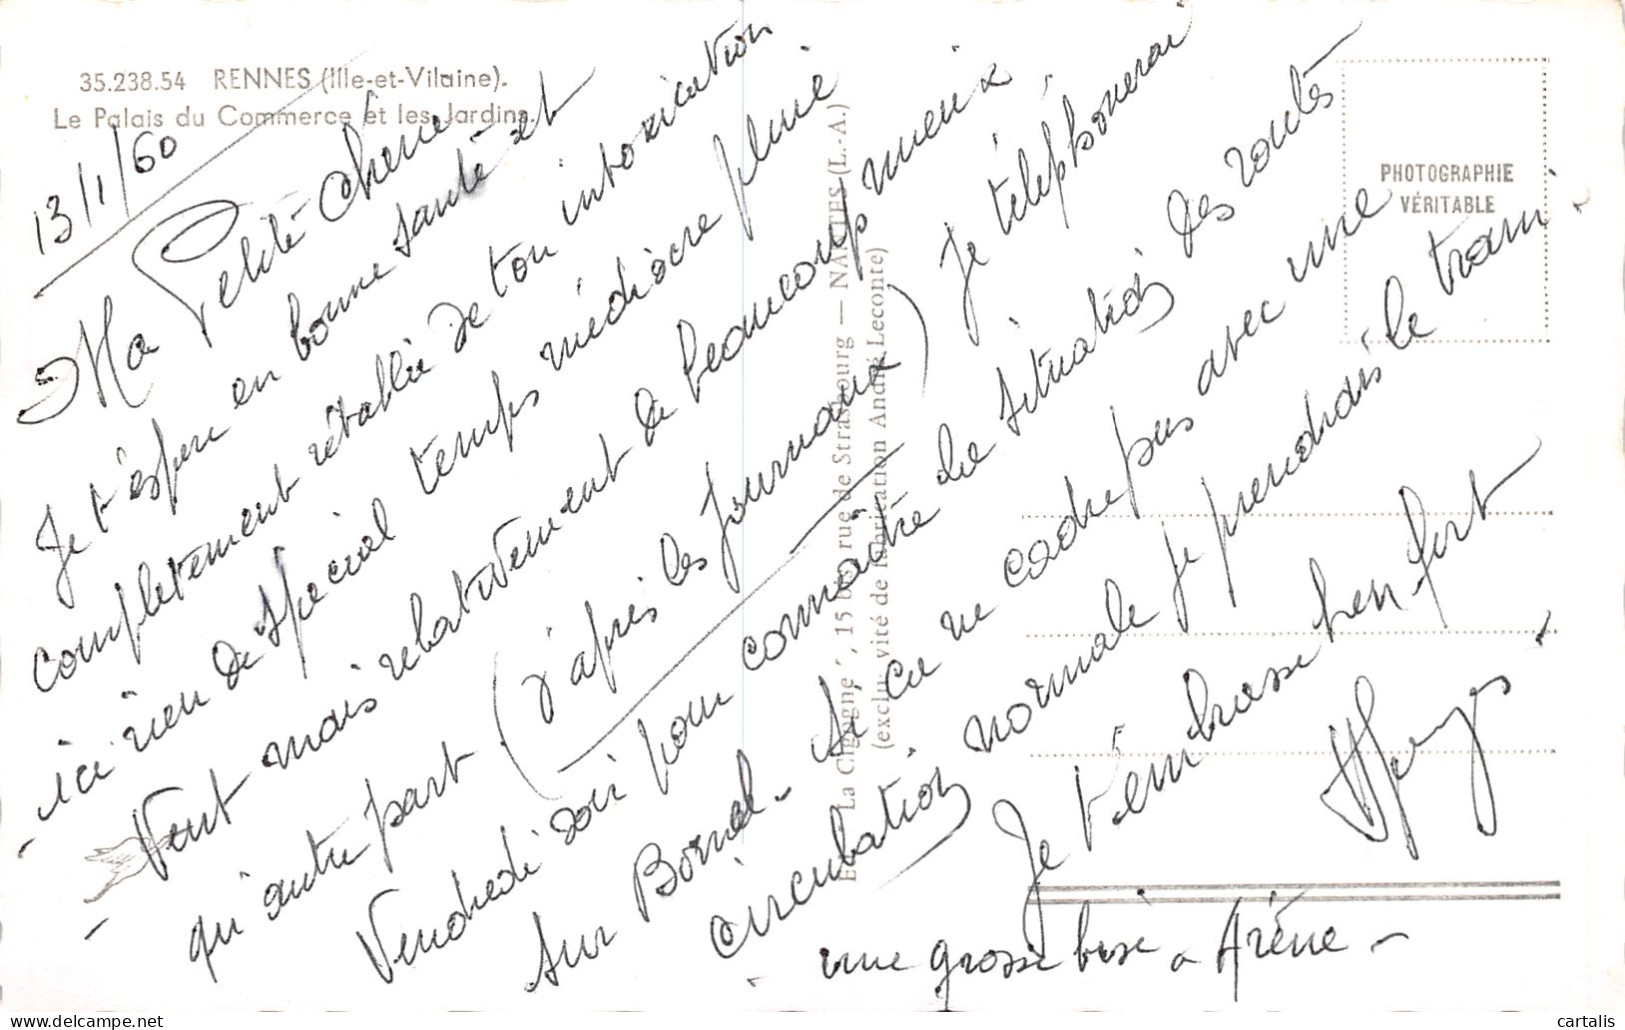 35.238.54 RENNES (Ille-et-Vilaine).
Le Palais du Commerce et les Jardins.
13/1/60
Ma Petite Cherie
Je t'espere en bonne santé et
completement rétablie de ton intoxication
ici rien de special temps médiocre pluie
Vent mais relativement de beaucoup mieux
qu'autre part (d'après les journaux) Je téléphonerai
Vendredi soir pour connaître la situation des routes
sur Bornel - si ca ne cadre pas avec une
circulation normale je prendrais le train.
Je t'embrasse bien fort
une grosse bise a Arène -
PHOTOGRAPHIE
VÉRITABLE
La Cigogne", 15 bis, rue de Strasbourg — NANTES (L.-A.)
(exclusivité de fabrication André Leconte)
cartalis